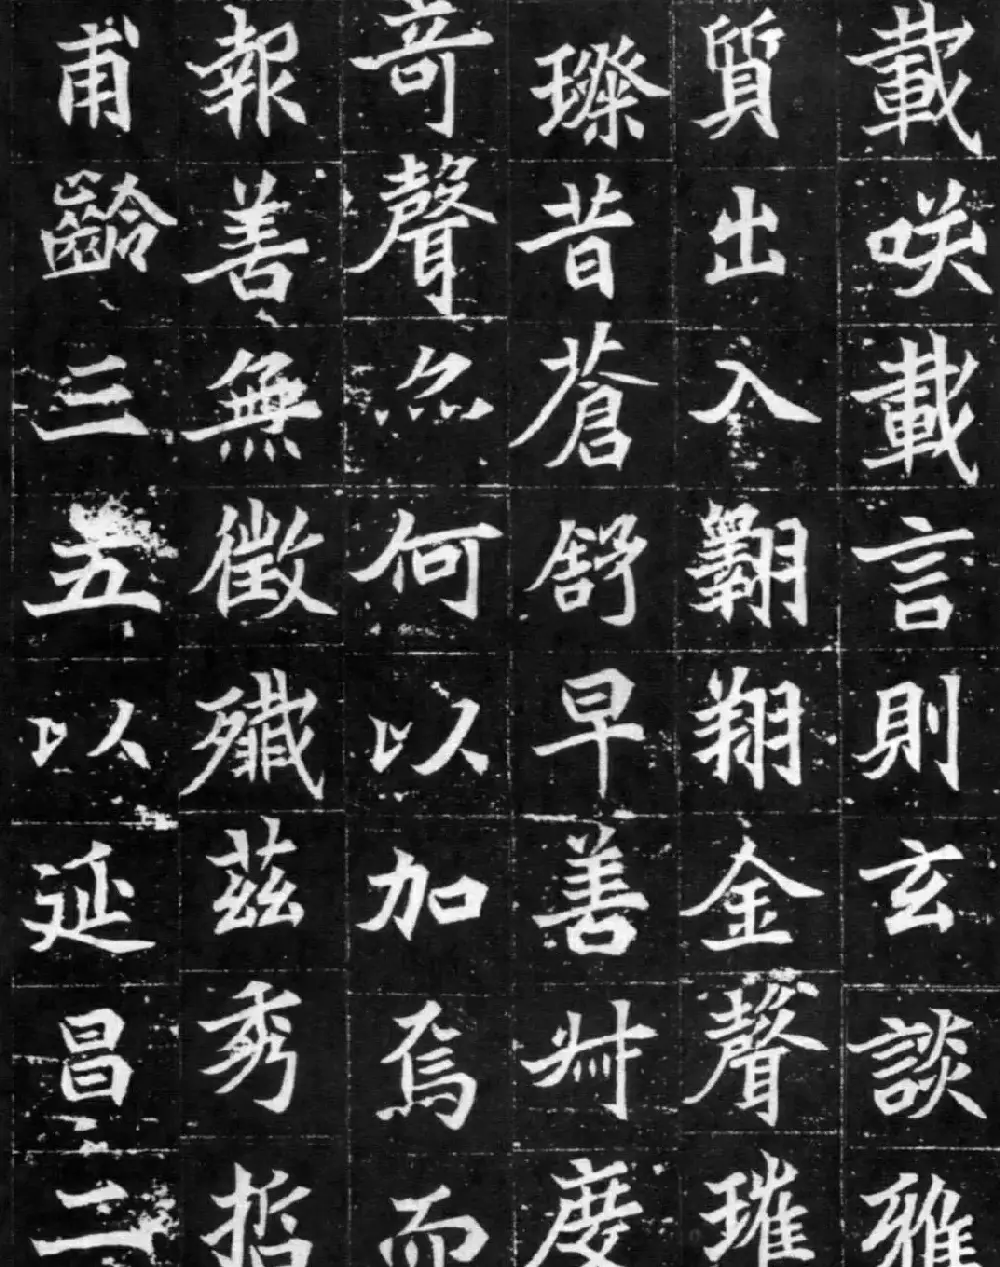 載咲載言則玄談雅
質出入翺翔金聲璀
璨昔蒼舒早善叔度
奇聲亦何以加焉而
報善無徵殲茲秀哲
甫齡三五以延昌二